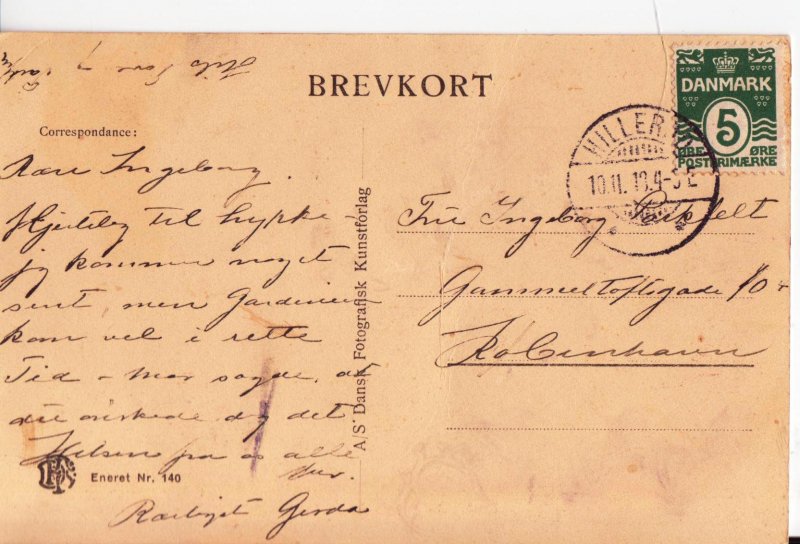 BREVKORT
Correspondance:
Kære Ingeborg.
Hjertelig til lykke –
jeg kommer noget
sent, men Gardinerne
kom vel i rette
Tid – Mor sagde, at
du ønskede dig det
Hilsen fra os alle
her.
Kærligst Gerda
Eneret Nr. 140
A/S Dansk Fotografisk Kunstforlag
DANMARK
5
ØRE ØRE
POSTFRIMÆRKE
HILLERØD
10.11.13.4-5 E
Fru Ingeborg
Gammeltoftsgade 10
København